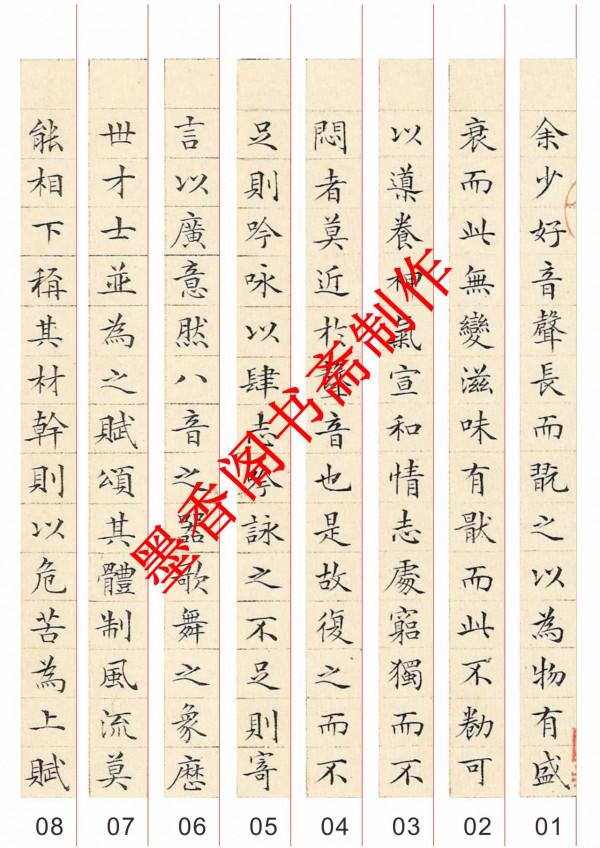 余少好音聲長而翫之以為物有盛
衰而此無變滋味有猒而此不勌可
以導養神氣宣和情志處窮獨而不
悶者莫近於聲音也是故復之而不
足則吟咏以肆志吟詠之不足則寄
言以廣意然八音之器歌舞之象歷
世才士並為之賦頌其體制風流莫
能相下稱其材幹則以危苦為上賦
墨香阁图书斋制作
08 07 06 05 04 03 02 01